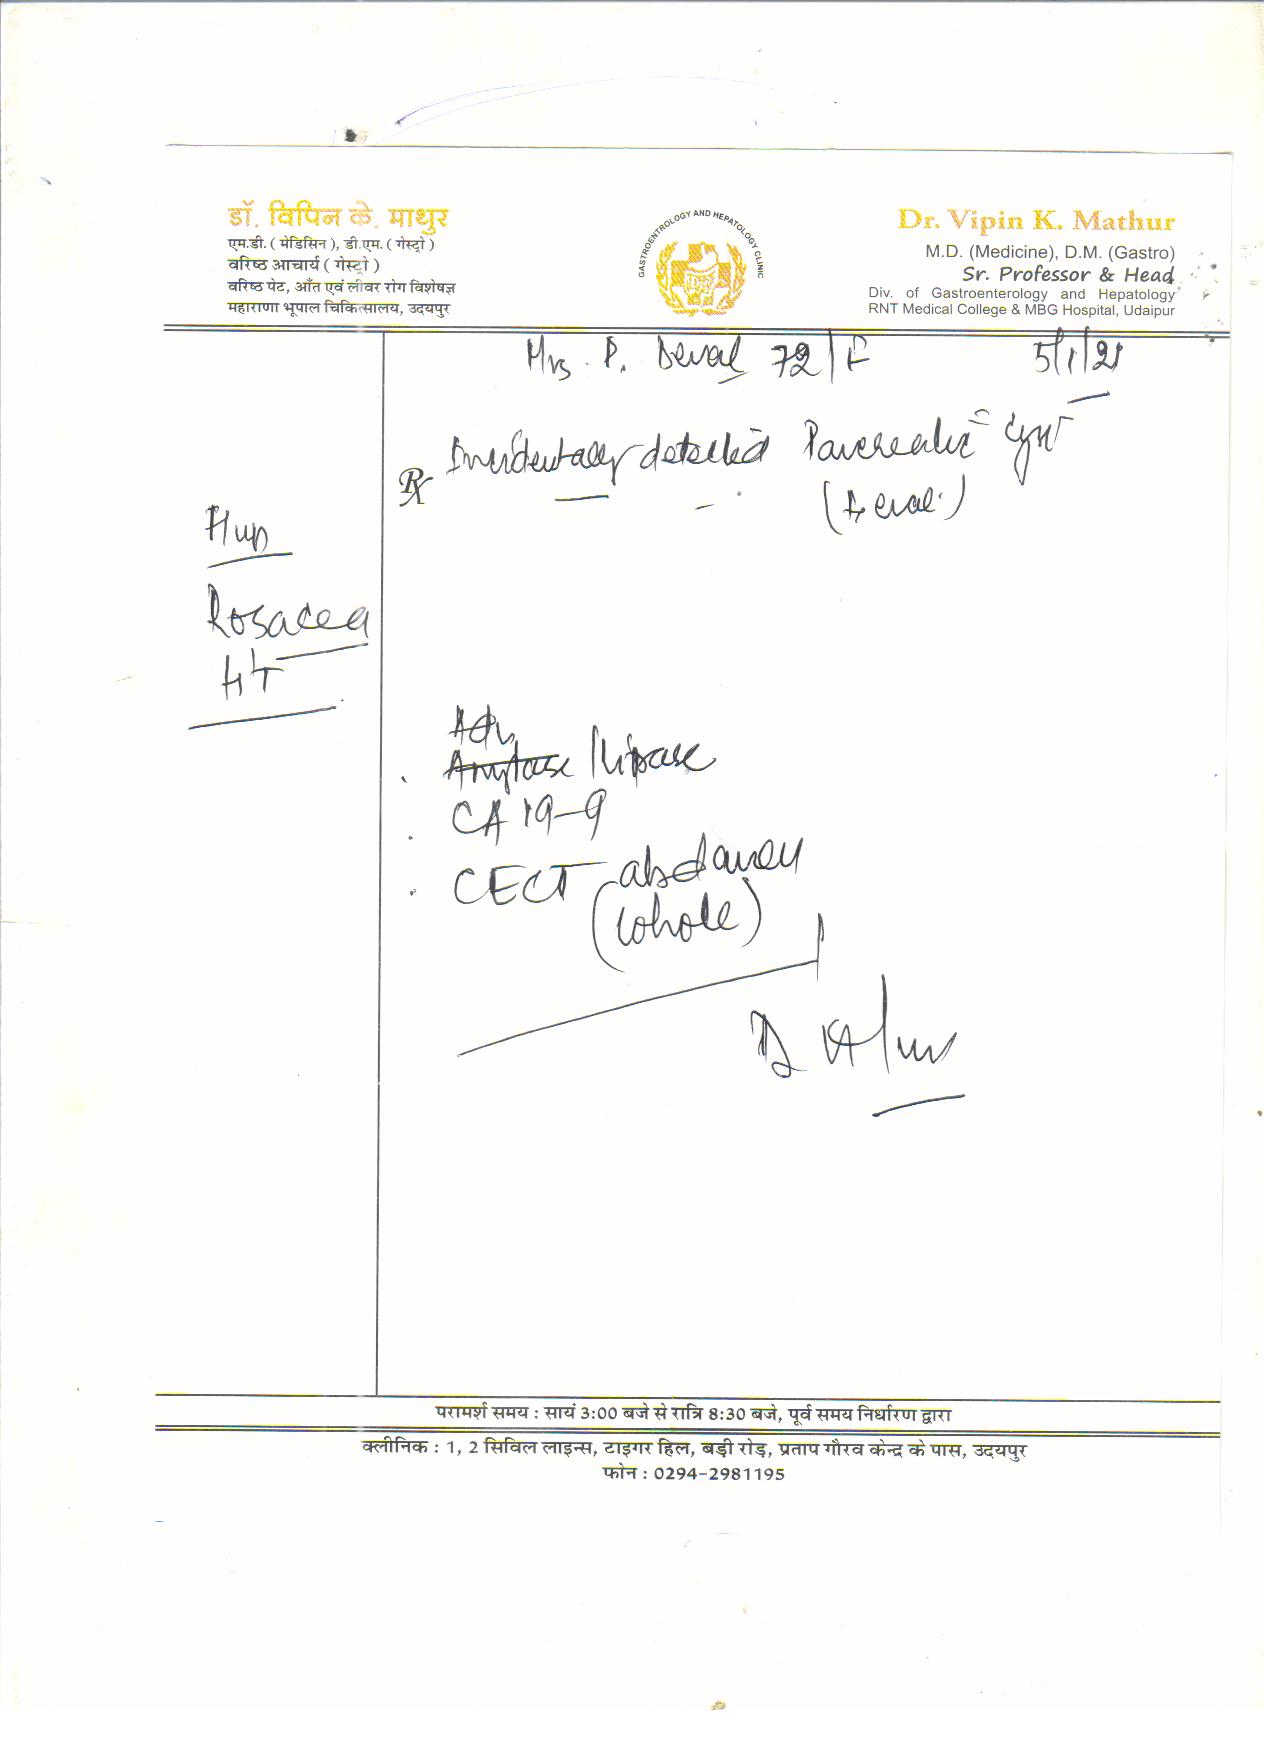 डॉ. विपिन के. माथुर
एम.डी. ( मेडिसिन ), डी.एम. ( गेस्ट्रो )
वरिष्ठ आचार्य ( गेस्ट्रो )
वरिष्ठ पेट, आँत एवं लीवर रोग विशेषज्ञ
महाराणा भूपाल चिकित्सालय, उदयपुर
GASTROENTROLOGY AND HEPATOLOGY CLINIC
Dr. Vipin K. Mathur
M.D. (Medicine), D.M. (Gastro)
Sr. Professor & Head
Div. of Gastroenterology and Hepatology
RNT Medical College & MBG Hospital, Udaipur
Mrs. P. 72/F 5/1/21
Rx Incidentally detected Pancreatic Cyst
Rosacea
HT
Adv
Amylase / Lipase
CA 19-9
CECT abdomen
(whole)
परामर्श समय : सायं 3:00 बजे से रात्रि 8:30 बजे, पूर्व समय निर्धारण द्वारा
क्लीनिक : 1, 2 सिविल लाइन्स, टाइगर हिल, बड़ी रोड़, प्रताप गौरव केन्द्र के पास, उदयपुर
फोन : 0294-2981195